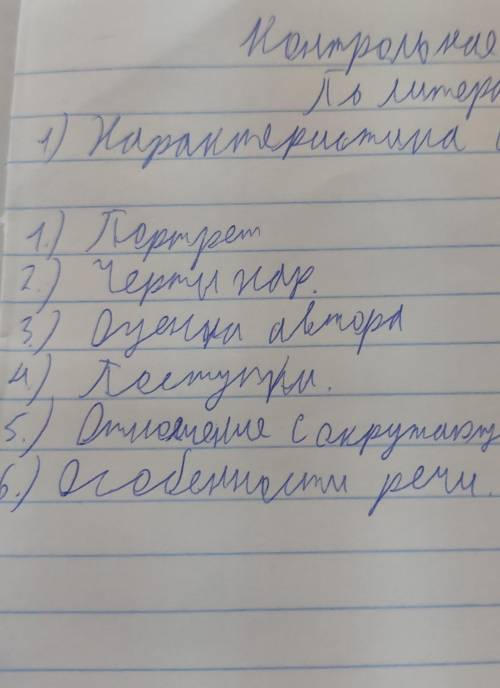 Контрольная
По литера
1) Характеристика
1.) Портрет
2.) Черты хар.
3.) Оценка автора
4.) Поступки.
5.) Отношение с окружающ
6.) Особенности речи.